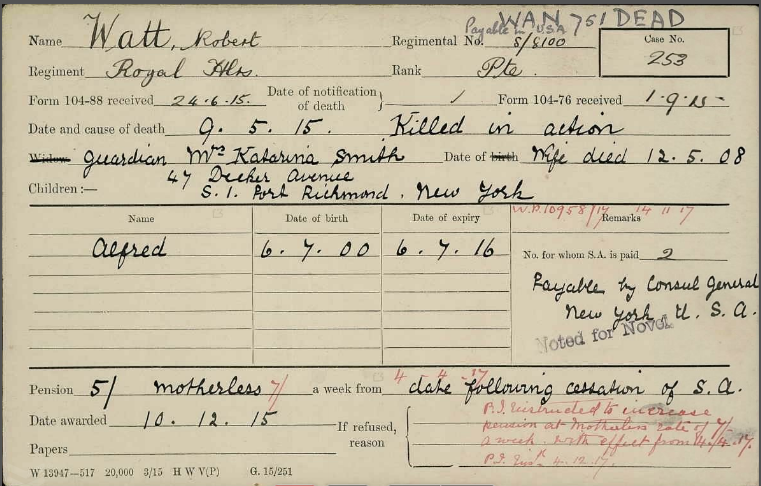 WAN 751 DEAD
Payable in USA
Name Watt, Robert Regimental No. S/8100 Case No. 253
Regiment Royal Hrs. Rank Pte.
Form 104-88 received 24.6.15. Date of notification of death } / Form 104-76 received 1.9.15
Date and cause of death 9. 5. 15. Killed in action
Widow guardian Mrs Katarina Smith Date of birth Wife died 12. 5. 08
47 Decker Avenue
Children:— S. I. Port Richmond. New York
W.P.10958/17 14 11 17
Name Date of birth Date of expiry Remarks
Alfred 6. 7. 00 6. 7. 16 No. for whom S.A. is paid 2
Payable by Consul General
New York U. S. A.
Noted for Novel
4 - 4 - 17
Pension 5/ motherless 7/ a week from date following cessation of S. A.
Date awarded 10. 12. 15 If refused, reason
P.I. Instructed to increase
pension at Motherless rate of 7/
a week with effect from 4/4.17.
P.I. 4.12.17.
Papers
W 13947—517 20,000 3/15 H W V(P) G. 15/251